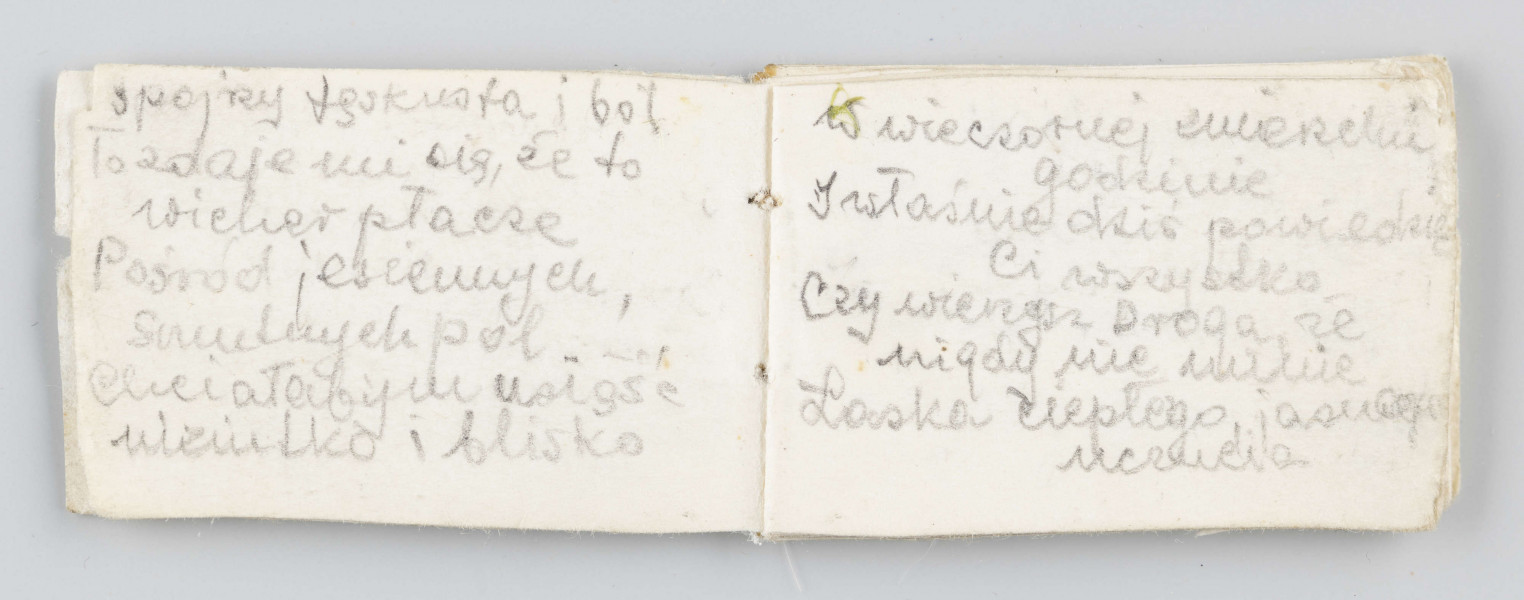 spojrzy tęsknota i ból
To zdaje mi się, że to
wicher płacze
Pośród jesiennych,
smutnych pól
Chciałabym usiąść
niziutko i blisko
W wieczornej zmierzchu
godzinie
I właśnie dziś powiedzieć
Ci wszystko
Czy wierzysz Droga, że
nigdy nie minie
Łaska ciepłego, jasnego
uczucia